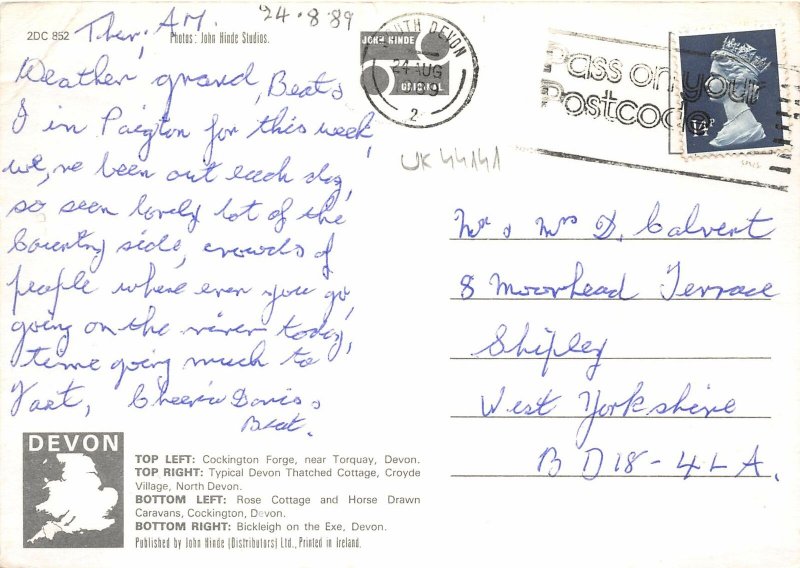 2DC 852
Ther, A.M.
24.8.89
Photos: John Hinde Studios.
JOHN HINDE
ORIGINAL
SOUTH DEVON
24 AUG
2
Pass on your
Postcode
14
UK44141
Weather grand, Beat &
I in Paigton for this week,
we,ve been out each day,
so seen lovely lot of the
Country side, crowds of
people where ever you go,
going on the river today,
time going much to
fast, Cheerio Doris &
Beat.
Mr & Mrs D. Calvert
8 Moorhead Terrace
Shipley
West Yorkshire
BD18-4LA.
DEVON
TOP LEFT: Cockington Forge, near Torquay, Devon.
TOP RIGHT: Typical Devon Thatched Cottage, Croyde
Village, North Devon.
BOTTOM LEFT: Rose Cottage and Horse Drawn
Caravans, Cockington, Devon.
BOTTOM RIGHT: Bickleigh on the Exe, Devon.
Published by John Hinde (Distributors) Ltd., Printed in Ireland.